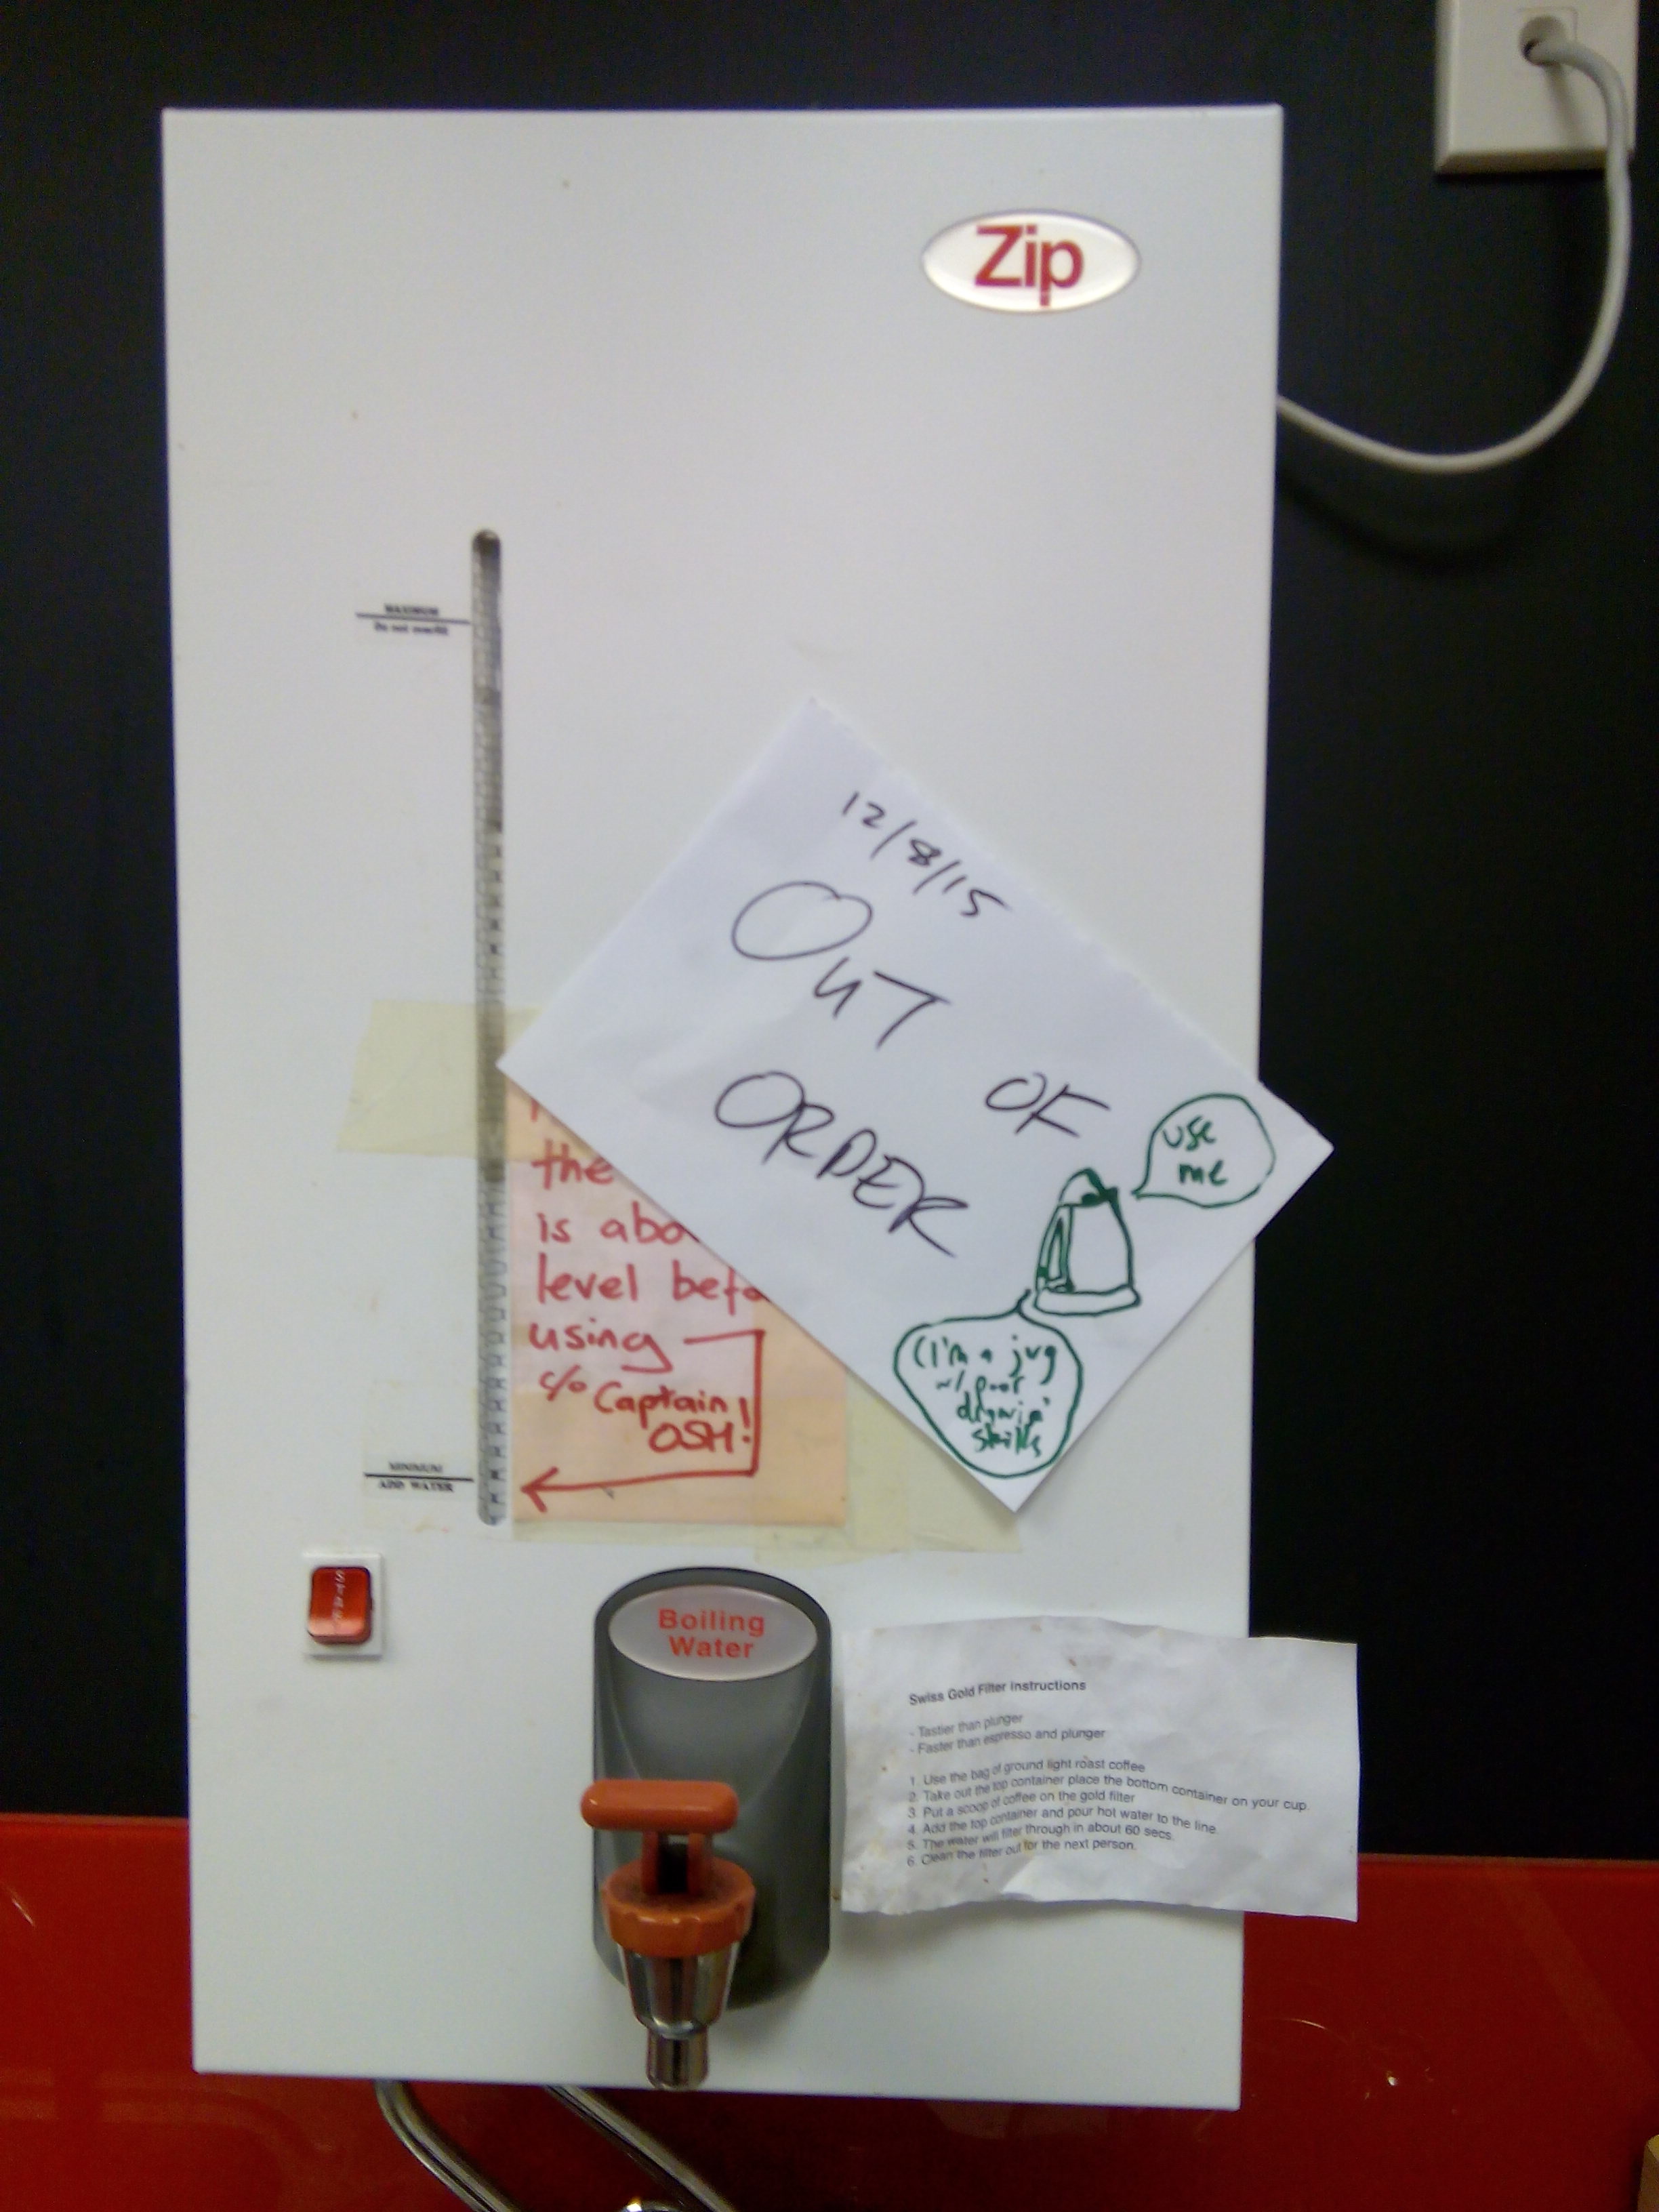 Zip
MAXIMUM
Do not overfill
12/8/15
OUT
OF
ORDER
use
me
(I'm a jug
w/ poor
drawin'
skills
the
is abo
level befo
using
c/o Captain
OSH!
MINIMUM
ADD WATER
START
Boiling
Water
Swiss Gold Filter Instructions
- Tastier than plunger
- Faster than espresso and plunger
1. Use the bag of ground light roast coffee
2. Take out the top container place the bottom container on your cup.
3. Put a scoop of coffee on the gold filter
4. Add the top container and pour hot water to the line.
5. The water will filter through in about 60 secs.
6. Clean the filter out for the next person.